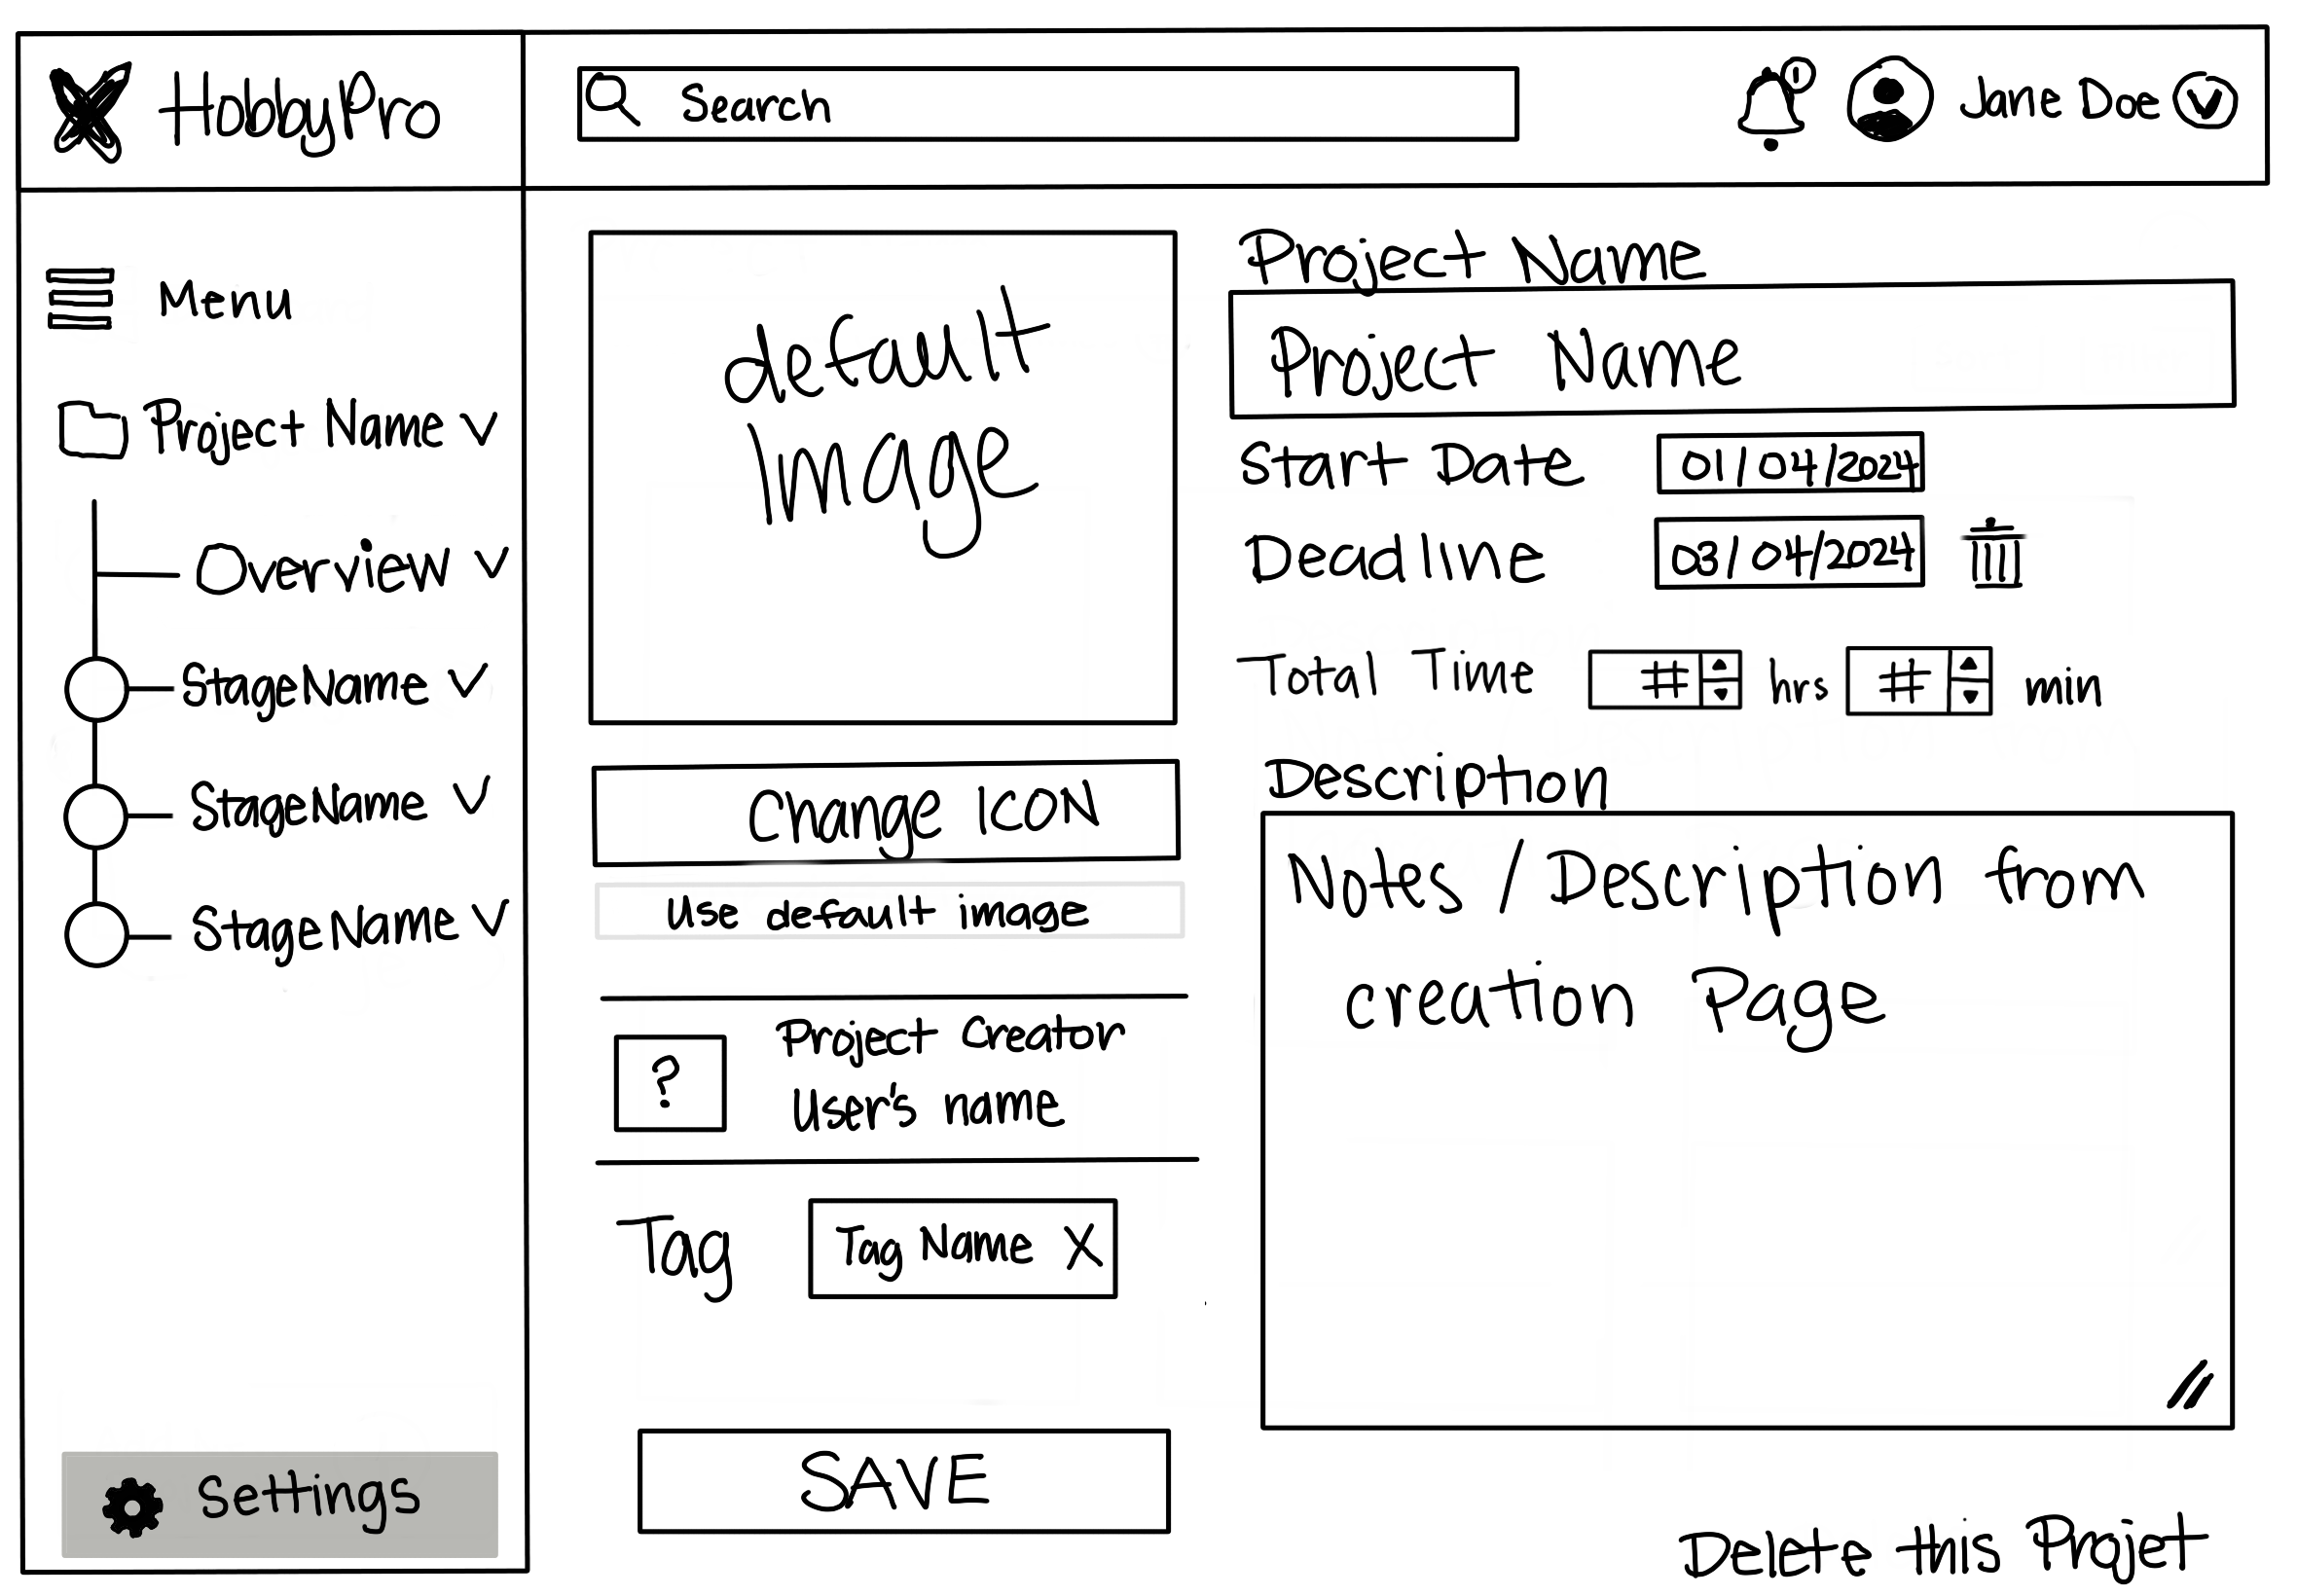 HobbyPro
Search
Jane Doe
Menu
Project Name
Overview
StageName
StageName
StageName
Settings
default
Image
Change ICON
Use default image
?
Project Creator
User's name
Tag
Tag Name X
SAVE
Project Name
Project Name
Start Date 01/04/2024
Deadline 03/04/2024
Total Time # hrs # min
Description
Notes / Description from
creation Page
Delete this Projet